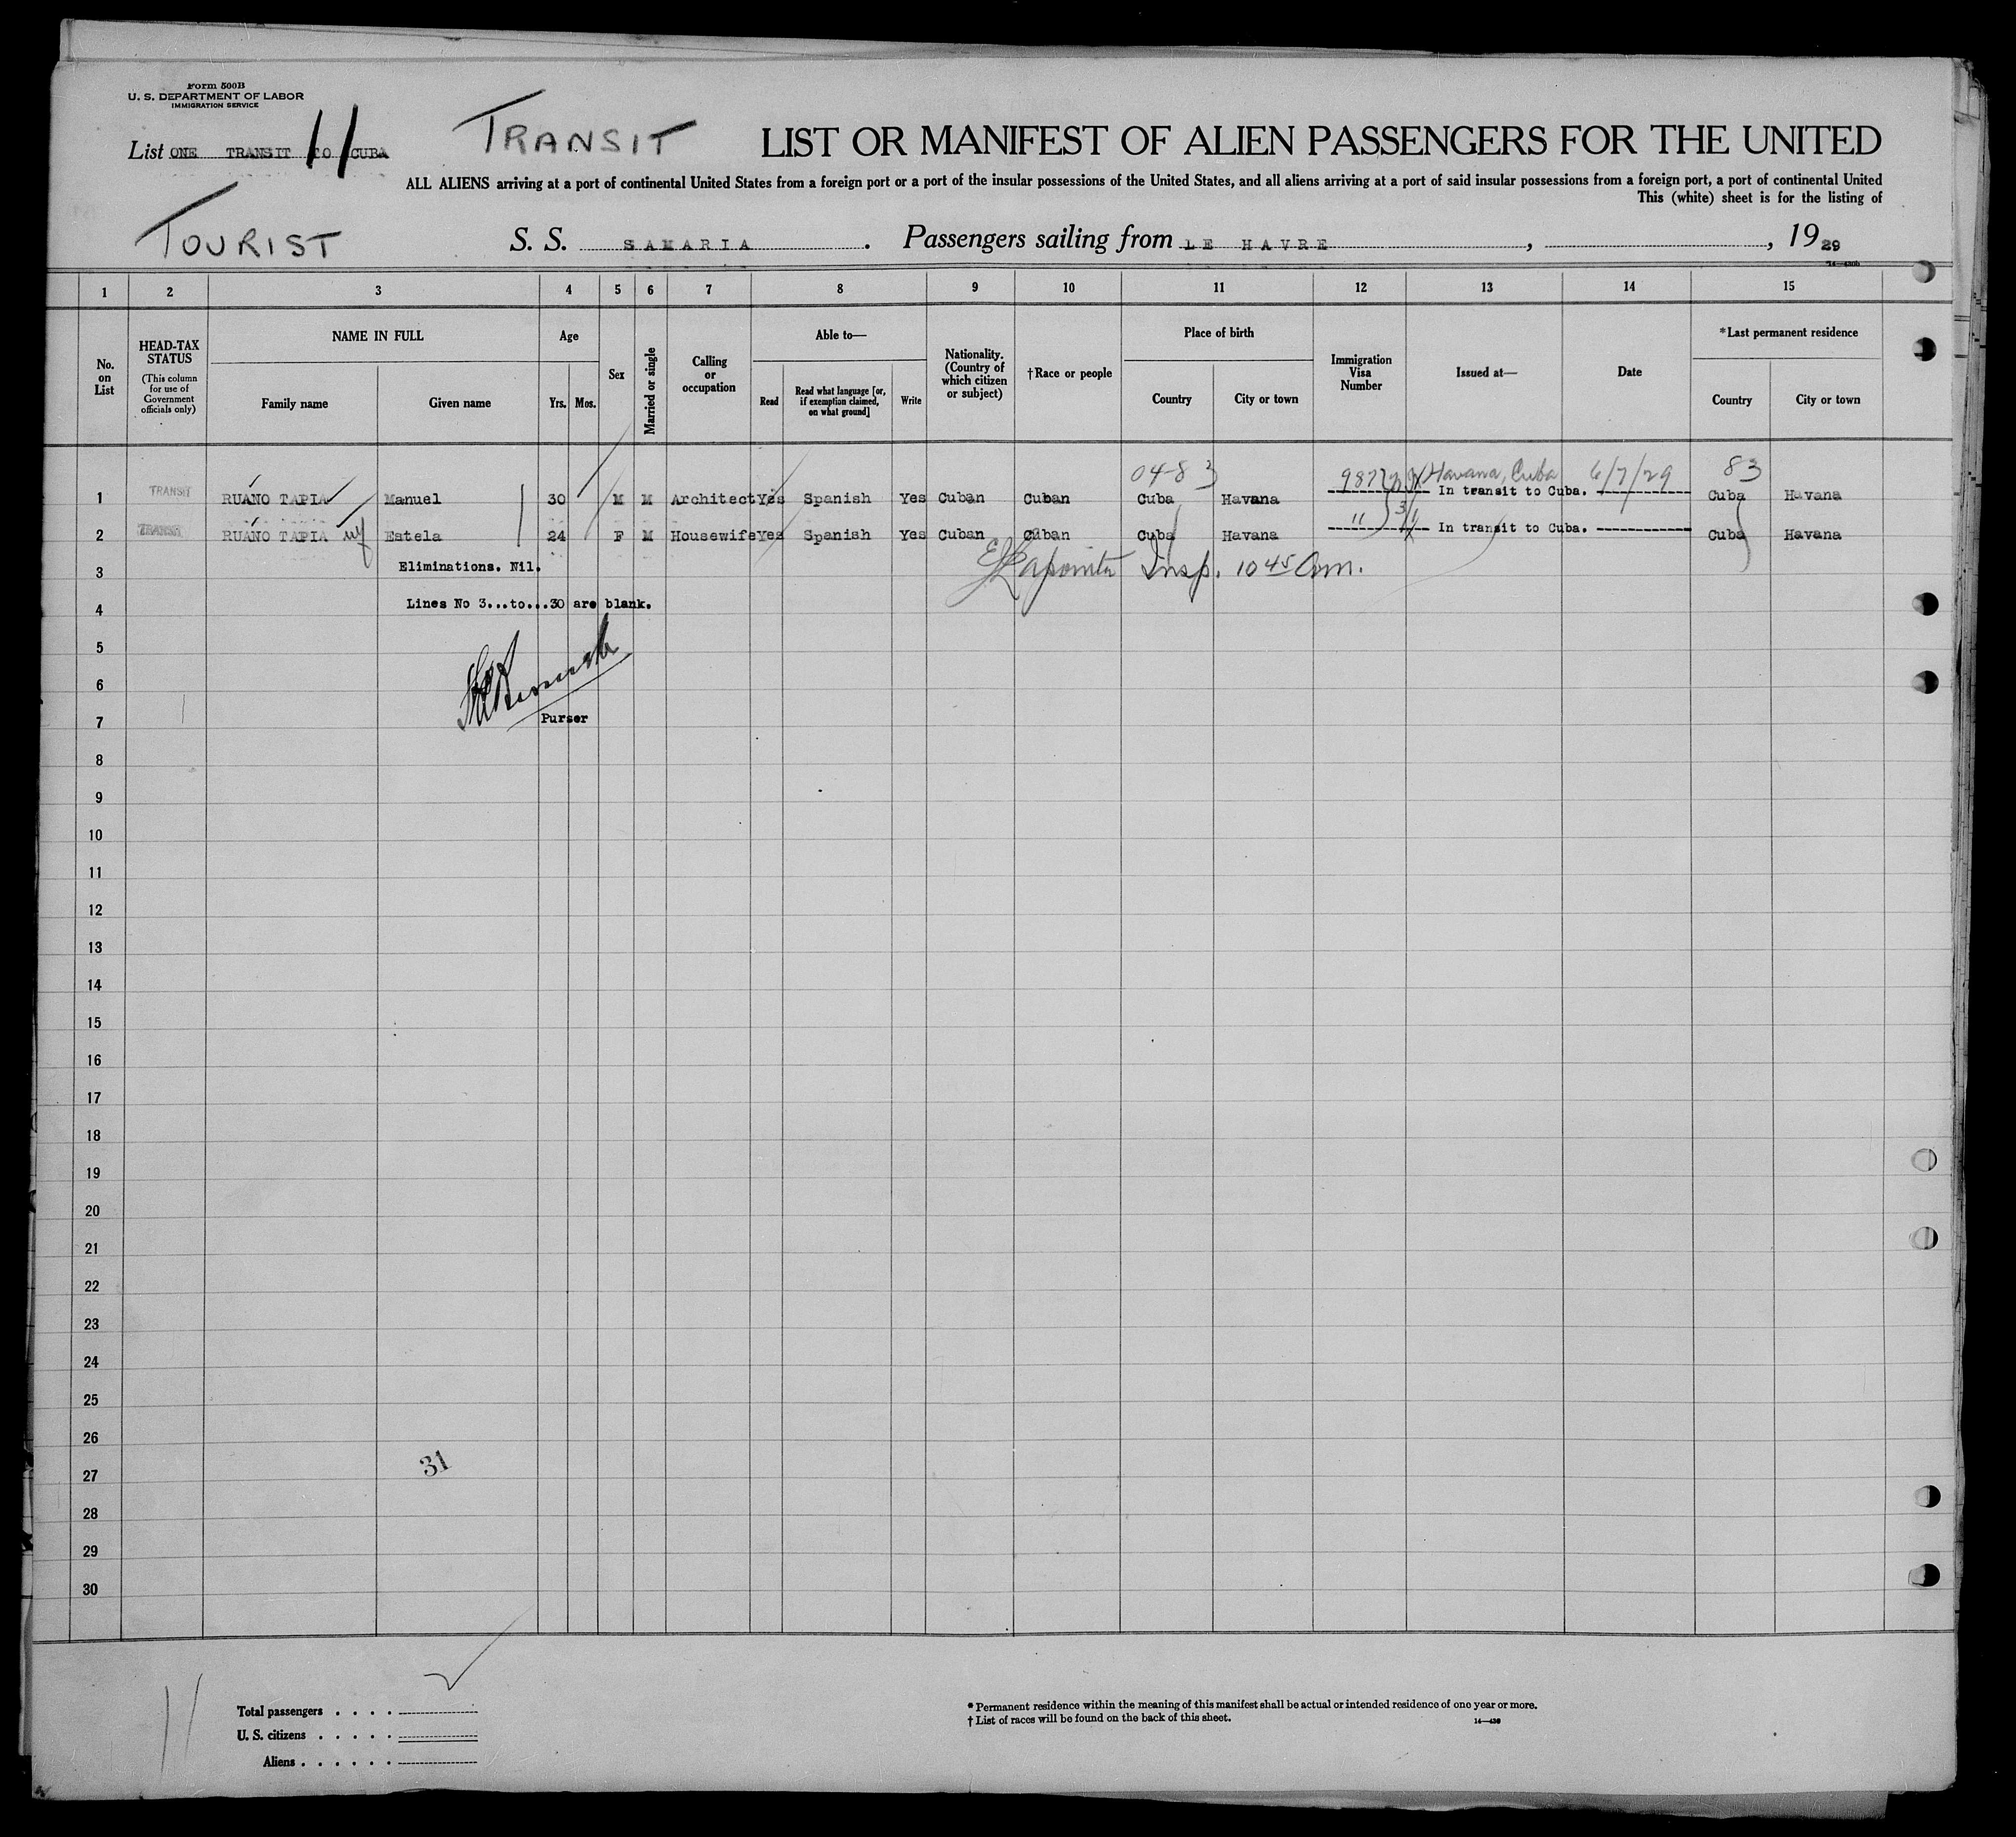 Form 500B
U. S. DEPARTMENT OF LABOR
IMMIGRATION SERVICE
List ONE TRANSIT TO CUBA 11
TRANSIT
LIST OR MANIFEST OF ALIEN PASSENGERS FOR THE UNITED
ALL ALIENS arriving at a port of continental United States from a foreign port or a port of the insular possessions of the United States, and all aliens arriving at a port of said insular possessions from a foreign port, a port of continental United
This (white) sheet is for the listing of
TOURIST
S. S. SAMARIA . Passengers sailing from LE HAVRE , , 1929
1 2 3 4 5 6 7 8 9 10 11 12 13 14 15
No. on List
HEAD-TAX STATUS (This column for use of Government officials only)
NAME IN FULL
Family name Given name
Age
Yrs. Mos.
Sex
Married or single
Calling or occupation
Able to—
Read Read what language [or, if exemption claimed, on what ground] Write
Nationality. (Country of which citizen or subject)
†Race or people
Place of birth
Country City or town
Immigration Visa Number
Issued at—
Date
*Last permanent residence
Country City or town
04-83 9872 Havana, Cuba 6/7/29 83
1 TRANSIT RUANO TAPIA Manuel 30 M M Architect Yes Spanish Yes Cuban Cuban Cuba Havana In transit to Cuba. Cuba Havana
2 TRANSIT RUANO TAPIA wf Estela 24 F M Housewife Yes Spanish Yes Cuban Cuban Cuba Havana " In transit to Cuba. Cuba Havana
3 Eliminations. Nil. Lapointe Insp. 10 45 am.
4 Lines No 3...to...30 are blank.
5
6
7 Purser
8
9
10
11
12
13
14
15
16
17
18
19
20
21
22
23
24
25
26
27 31
28
29
30
11
Total passengers . . . .
U. S. citizens . . . . .
Aliens . . . . . .
* Permanent residence within the meaning of this manifest shall be actual or intended residence of one year or more.
† List of races will be found on the back of this sheet.
14—430